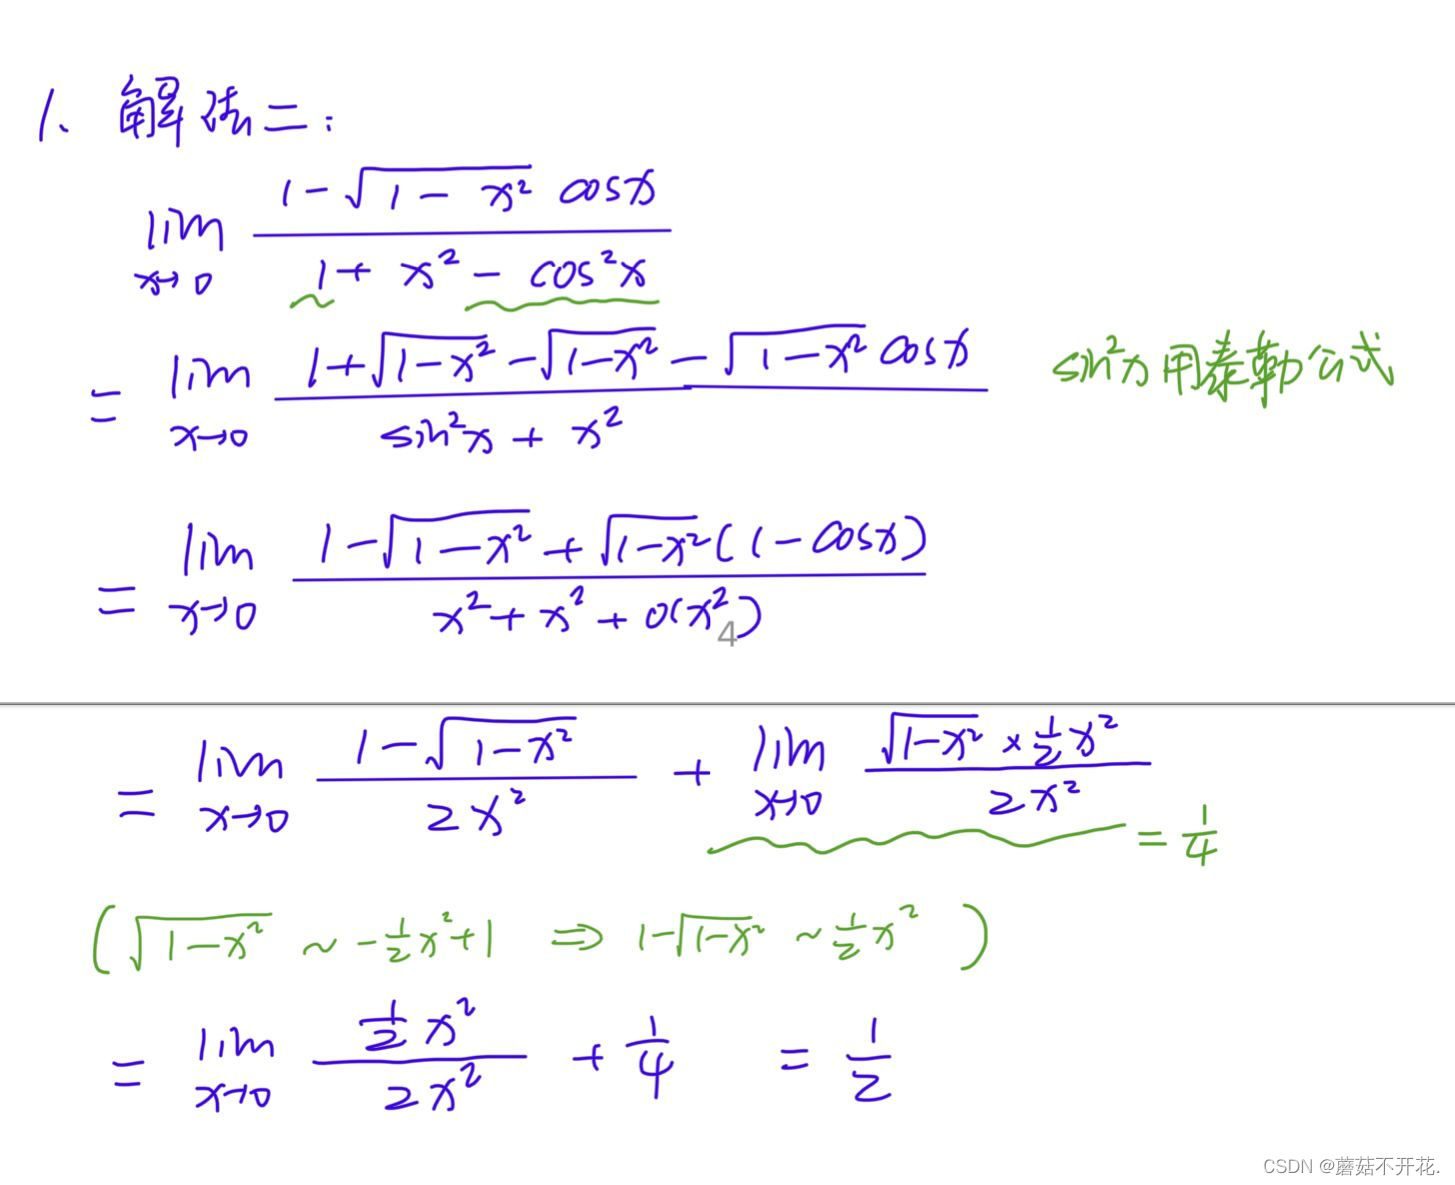 1、解法二：
lim x→0 (1-√(1-x²) cosx)/(1+x²-cos²x)
= lim x→0 (1+√(1-x²)-√(1-x²)-√(1-x²) cosx)/(sin²x+x²) sin²x用泰勒公式
= lim x→0 (1-√(1-x²)+√(1-x²)(1-cosx))/(x²+x²+o(x²))
4
= lim x→0 (1-√(1-x²))/(2x²) + lim x→0 (√(1-x²)×½x²)/(2x²) = 1/4
(√(1-x²) ~ -½x²+1 ⇒ 1-√(1-x²) ~ ½x²)
= lim x→0 (½x²)/(2x²) + 1/4 = 1/2
CSDN @蘑菇不开花.